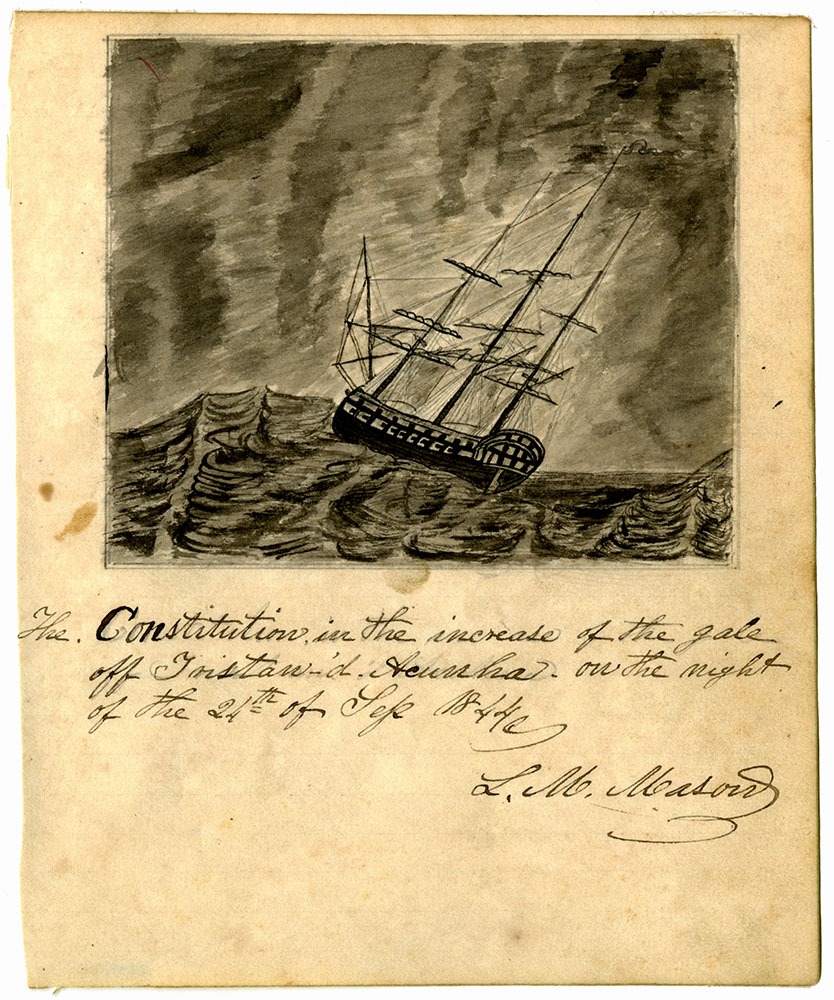 The. Constitution. in the increase of the gale
off Tristan-'d. Acunha. on the night
of the 24th of Sep 1844
L. M. Mason